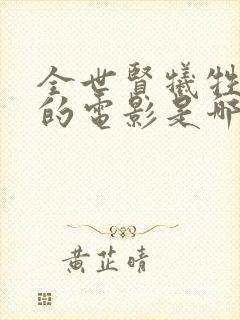 全世賢犧牲
的電影是哪
黃芷晴